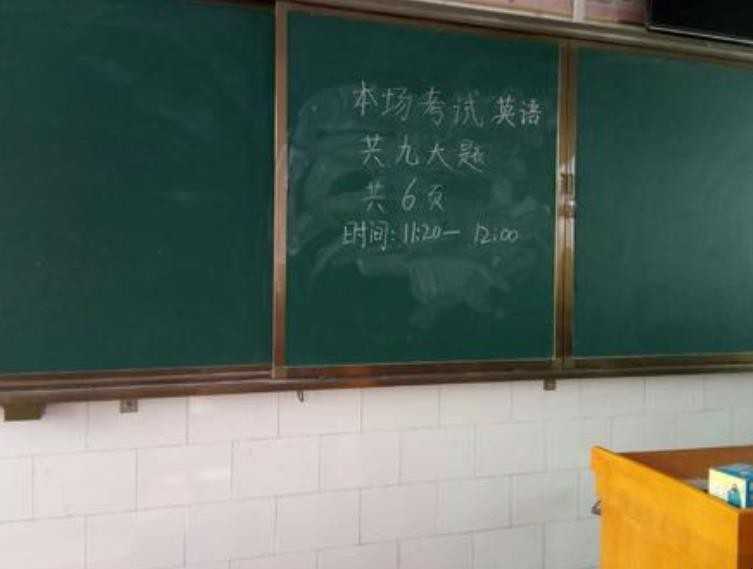 本场考试英语
共九大题
共6页
时间:11:20—12:00